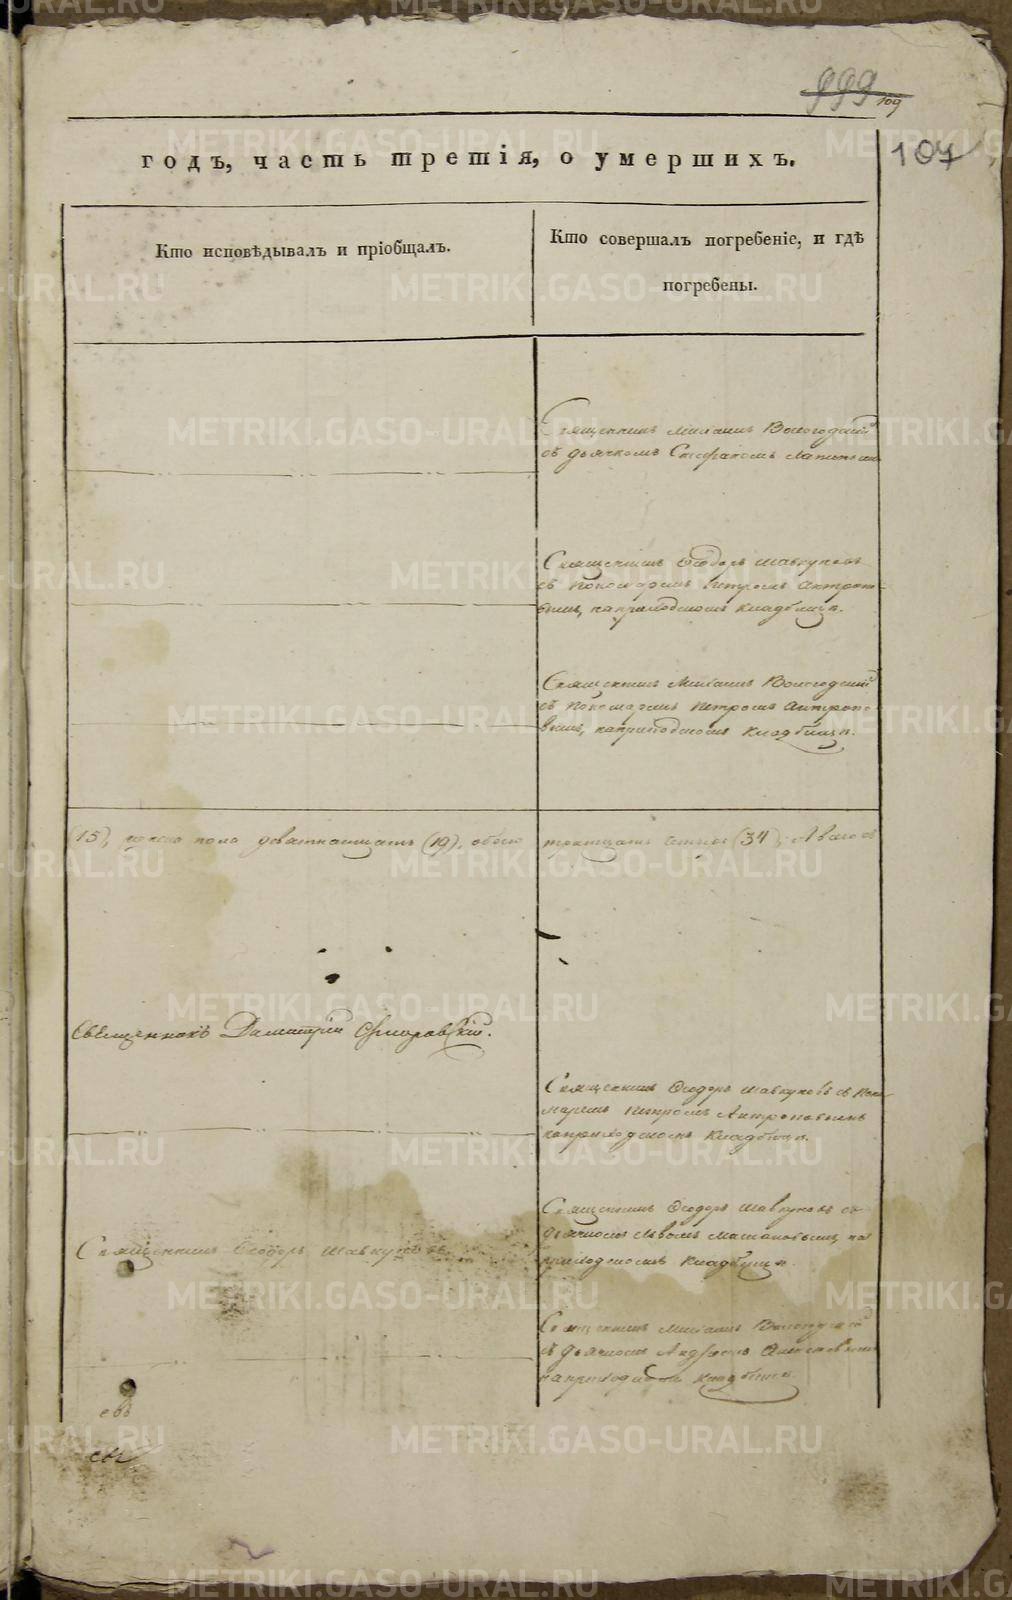 999
109
107
годъ, часть третія, о умершихъ.
Кто исповѣдывалъ и пріобщалъ.
Кто совершалъ погребеніе, и гдѣ
погребены.
Священникъ Михаилъ Вологодскій
съ дьячкомъ Стефаномъ
Священникъ Ѳеодоръ Шавкуновъ
съ пономаремъ Петромъ Антропо-
вымъ, на приходскомъ кладбищѣ.
Священникъ Михаилъ Вологодский
съ пономаремъ Петромъ Антропо-
вымъ, на приходскомъ кладбищѣ.
(15), женска пола девятнатцать (19), обоего
тритцать четыре (34),
Священникъ Димитрій
Священникъ Ѳеодоръ Шавкуновъ съ поно-
маремъ Петромъ Антроповымъ
на приходскомъ кладбищѣ.
Священникъ Ѳеодоръ Шавкуновъ
Священникъ Ѳеодоръ Шавкуновъ съ
дьячкомъ Львомъ на
приходскомъ кладбищѣ.
Священникъ Михаилъ Вологодский
съ дьячкомъ
на приходскомъ кладбищѣ.
METRIKI.GASO-URAL.RU